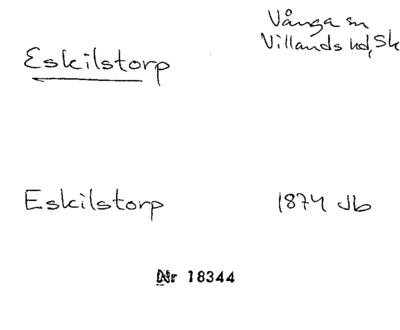 Eskilstorp
Vånga sn
Villands hd, Sk
Eskilstorp
1874 Jb
Nr 18344